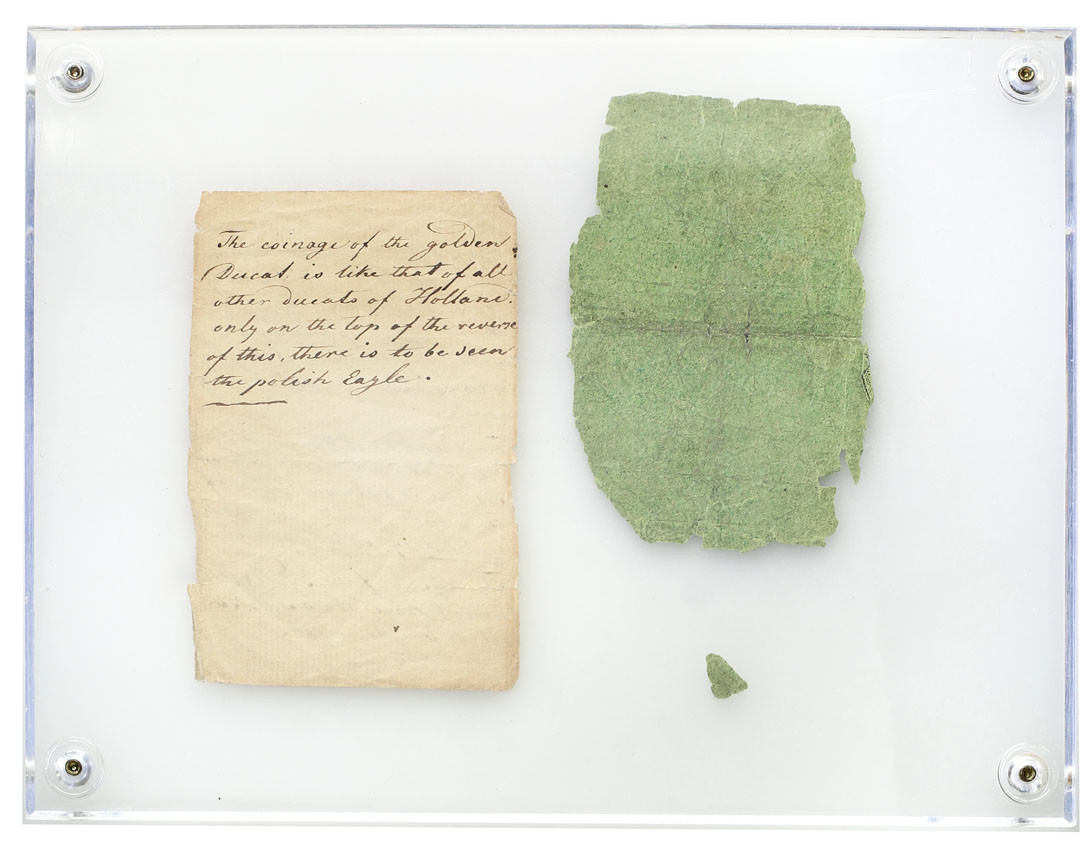 The coinage of the golden
Ducat is like that of all
other ducats of Holland.
only on the top of the reverse
of this, there is to be seen
the polish Eagle.